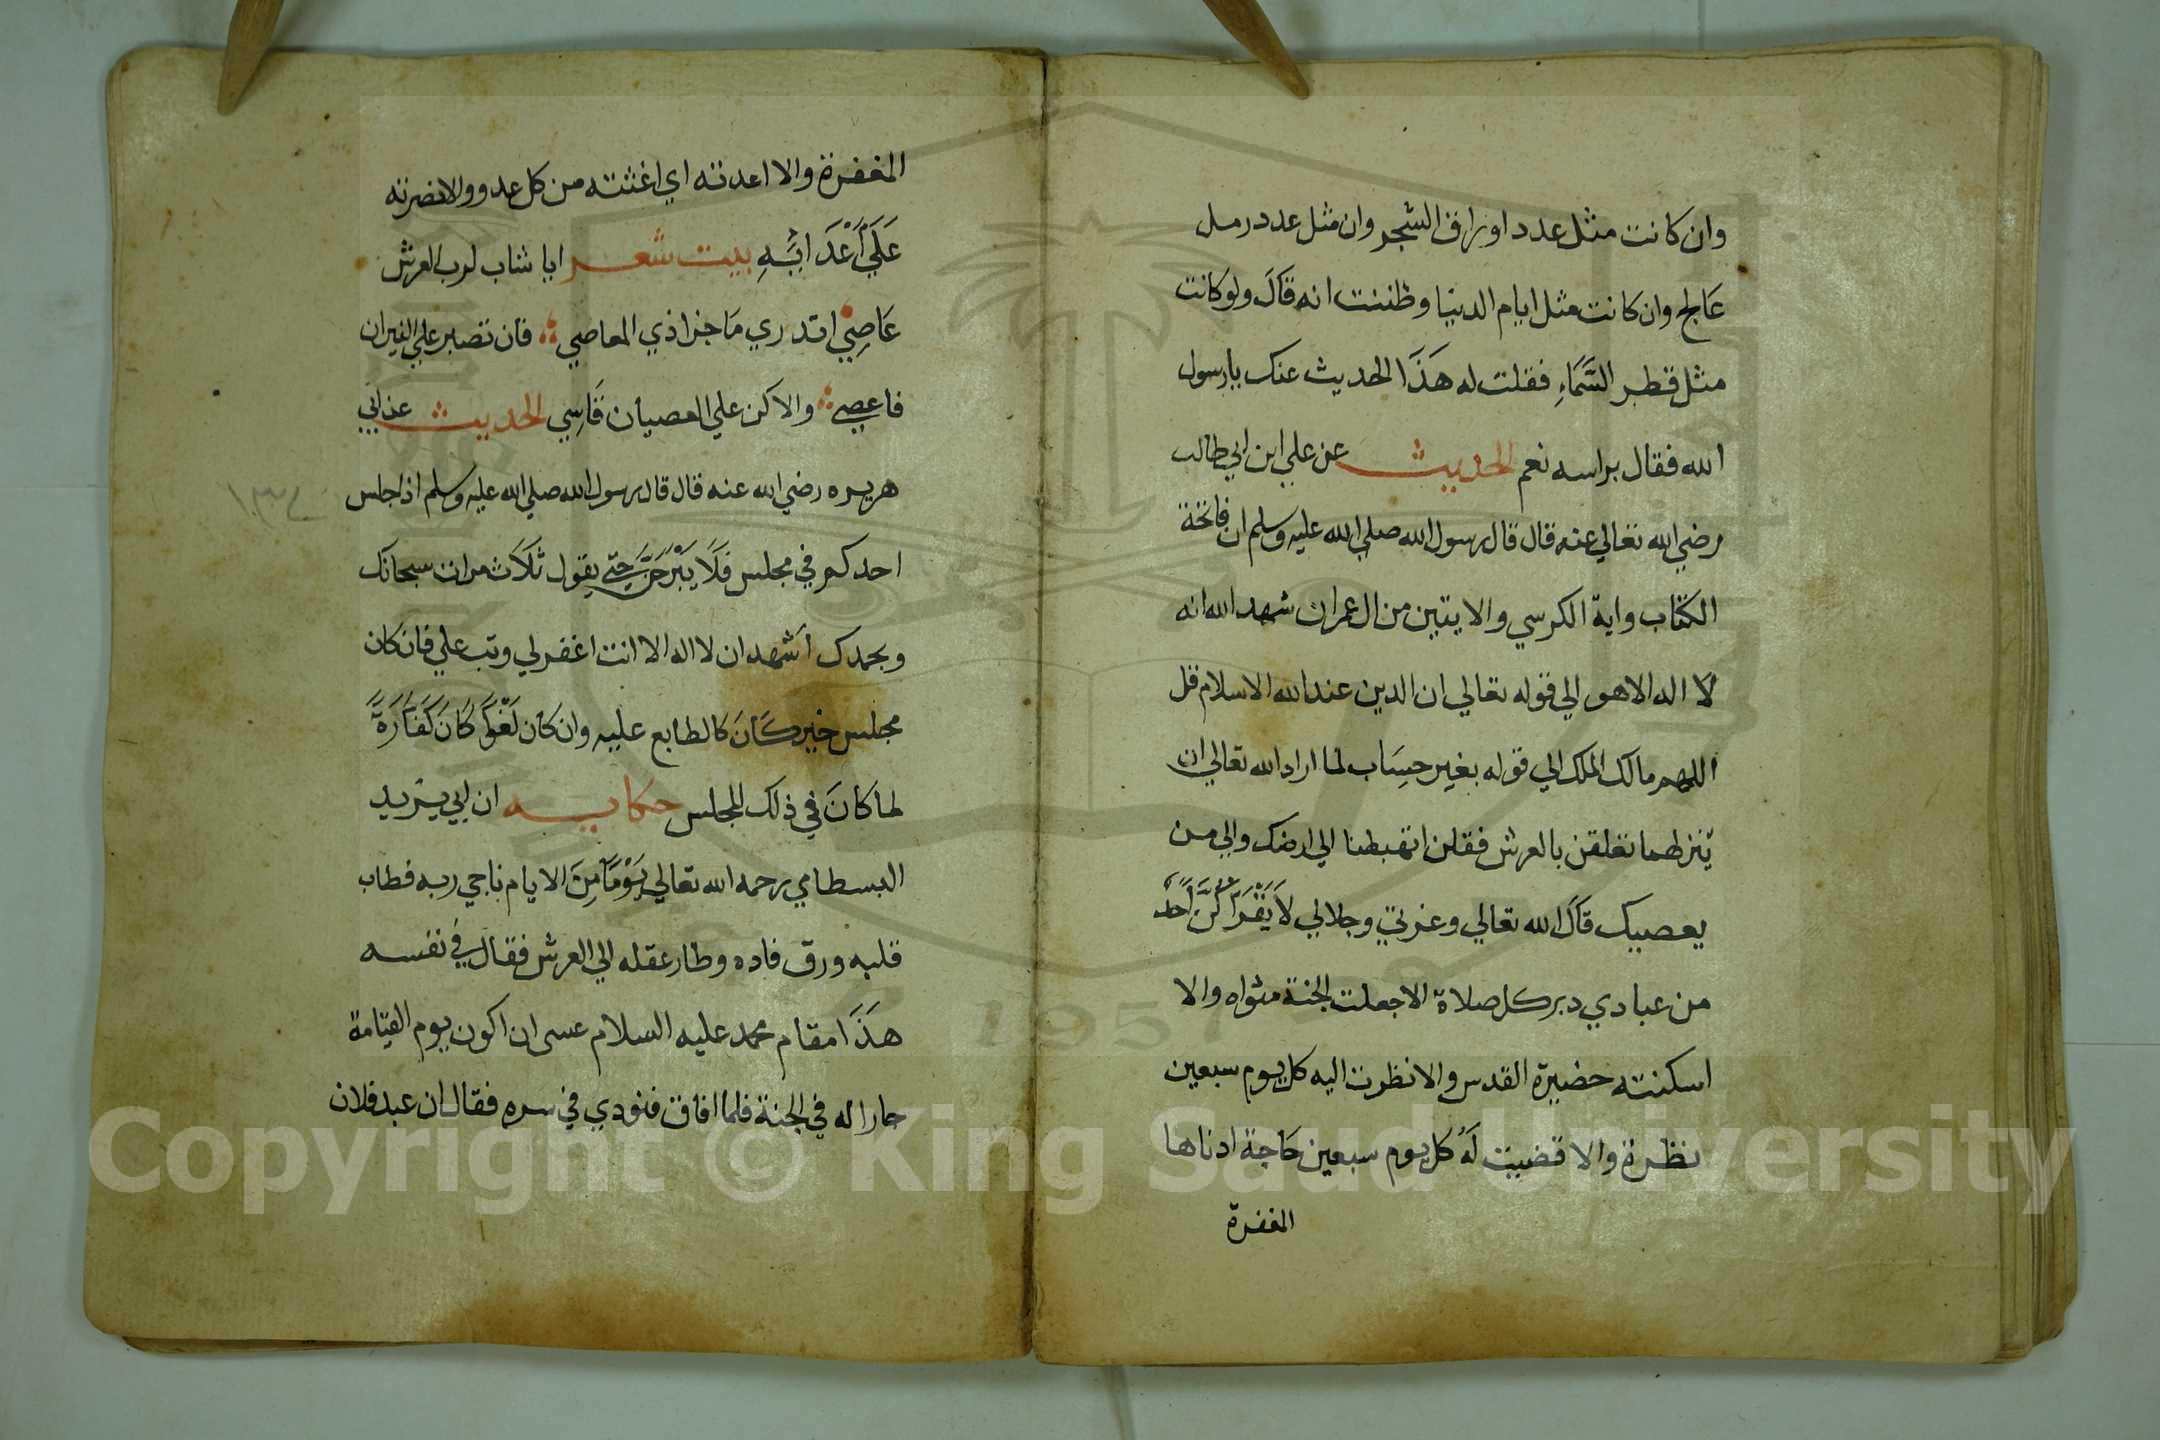 وان كانت مثل عدد اوراق الشجر وان مثل عدد رمل
عَالج وان كانت مثل ايام الدنيا وظننت انه قَالَ ولو كانت
مثل قطر السَّمَاءِ فقلت له هَذَا الحديث عنك يارسول
الله فقال براسه نعم الحديث عن علي ابن ابي طالب
رضي الله تعالي عنه قال قال رسول الله صلي الله عليه وسلم ان فاتحة
الكتاب واية الكرسي والايتين من ال عمران شهد الله انه
لا اله الا هو الي قوله تعالي ان الدين عند الله الاسلام قل
اللهم مالك الملك الي قوله بغير حِسَاب لما اراد الله تعالي ان
ينزلهما تعلقن بالعرش فقلن اتهبطنا الي ارضك والي من
يعصيك قَالَ الله تعالي وعزتي وجلالي لَا يَقْرَأُكُنَّ اَحَدٌ
من عبادي دبر كل صلاة الا جعلت الجنة مثواه والا
اسكنته حضيرة القدس والا نظرت اليه كل يوم سبعين
نظرة والا قضيت لَهُ كل يوم سبعين حَاجة ادناها
المغفرة
المغفرة والا اعدته اي اغثته من كل عدو والا نصرته
عَلَي اَعْدَائِهِ بيت شعر ايا شاب لرب العرش
عَاصِي اتدري مَا جزا ذي المعاصي فان تصبر علي النيران
فاعصي والا كن علي العصيان قَاسِي الحديث عن ابي
هريره رضي الله عنه قال قال رسول الله صلي الله عليه وسلم اذا جلس
احدكم في مجلس فَلَا يَبْرَحَنَّ حتي يقول ثَلَاث مرات سبحانك
وبحمدك اَشهد ان لا اله الا انت اغفر لي وتب علي فان كان
مجلس خير كَانَ كالطابع عليه وان كان لَغْوًا كَانَ كَفَارَةً
لما كَانَ في ذلك المجلس حكايه ان ابي يزيد
البسطامي رحمه الله تعالي يَوْمًا مِنَ الايام ناجي ربه فطاب
قلبه ورق فاده وطار عقله الي العرش فقال في نفسه
هَذَا مقام محمد عليه السلام عسى ان اكون يوم القيامة
جارا له في الجنة فلما افاق فنودي في سره فقال ان عبد فلان
Copyright © King Saud University
1957